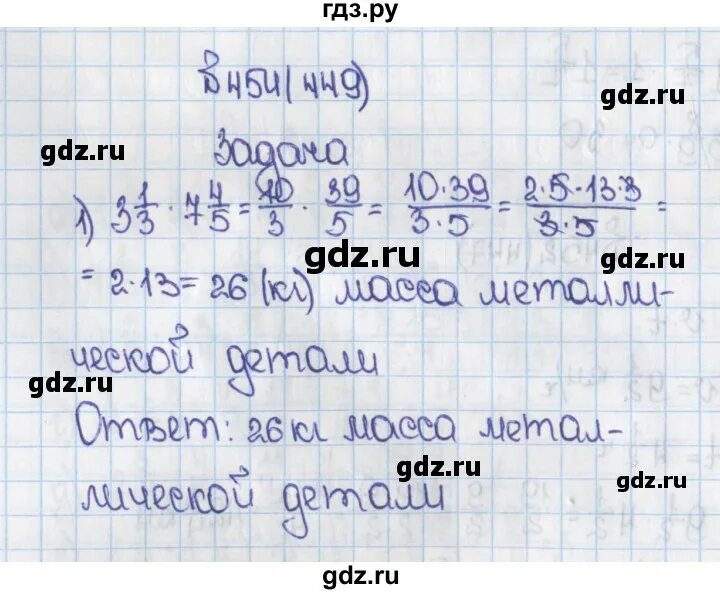 гдз.ру
В 454(449)
gdz.ru
gdz.ru
Задача
1) 3 1/3 · 7 4/5 = 10/3 · 39/5 = 10·39/3·5 = 2·5·13·3/3·5 =
gdz.ru
gdz.ru
= 2·13 = 26 (кг) масса металли-
ческой детали
gdz.ru
Ответ: 26 кг масса метал-
gdz.ru
gdz.ru
лической детали
gdz.ru